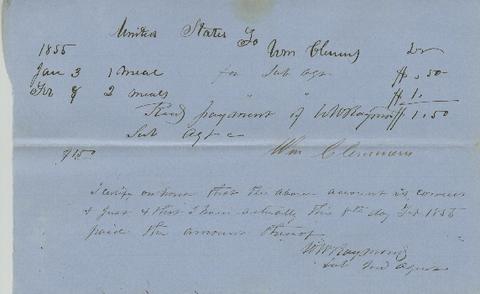 United States To Wm Clemens Dr
1855
Jan 3 1 meal for Sub Agt $ .50
Feb 8 2 meals " " $ 1.
Recd payment of W W Raymond $ 1.50
Sub Agt
$1.50 Wm Clemmens
I certify on honor that the above account is correct
& just & that I have actually this 8th day Feb 1855
paid the amount thereof
W W Raymond
Sub Ind Agent